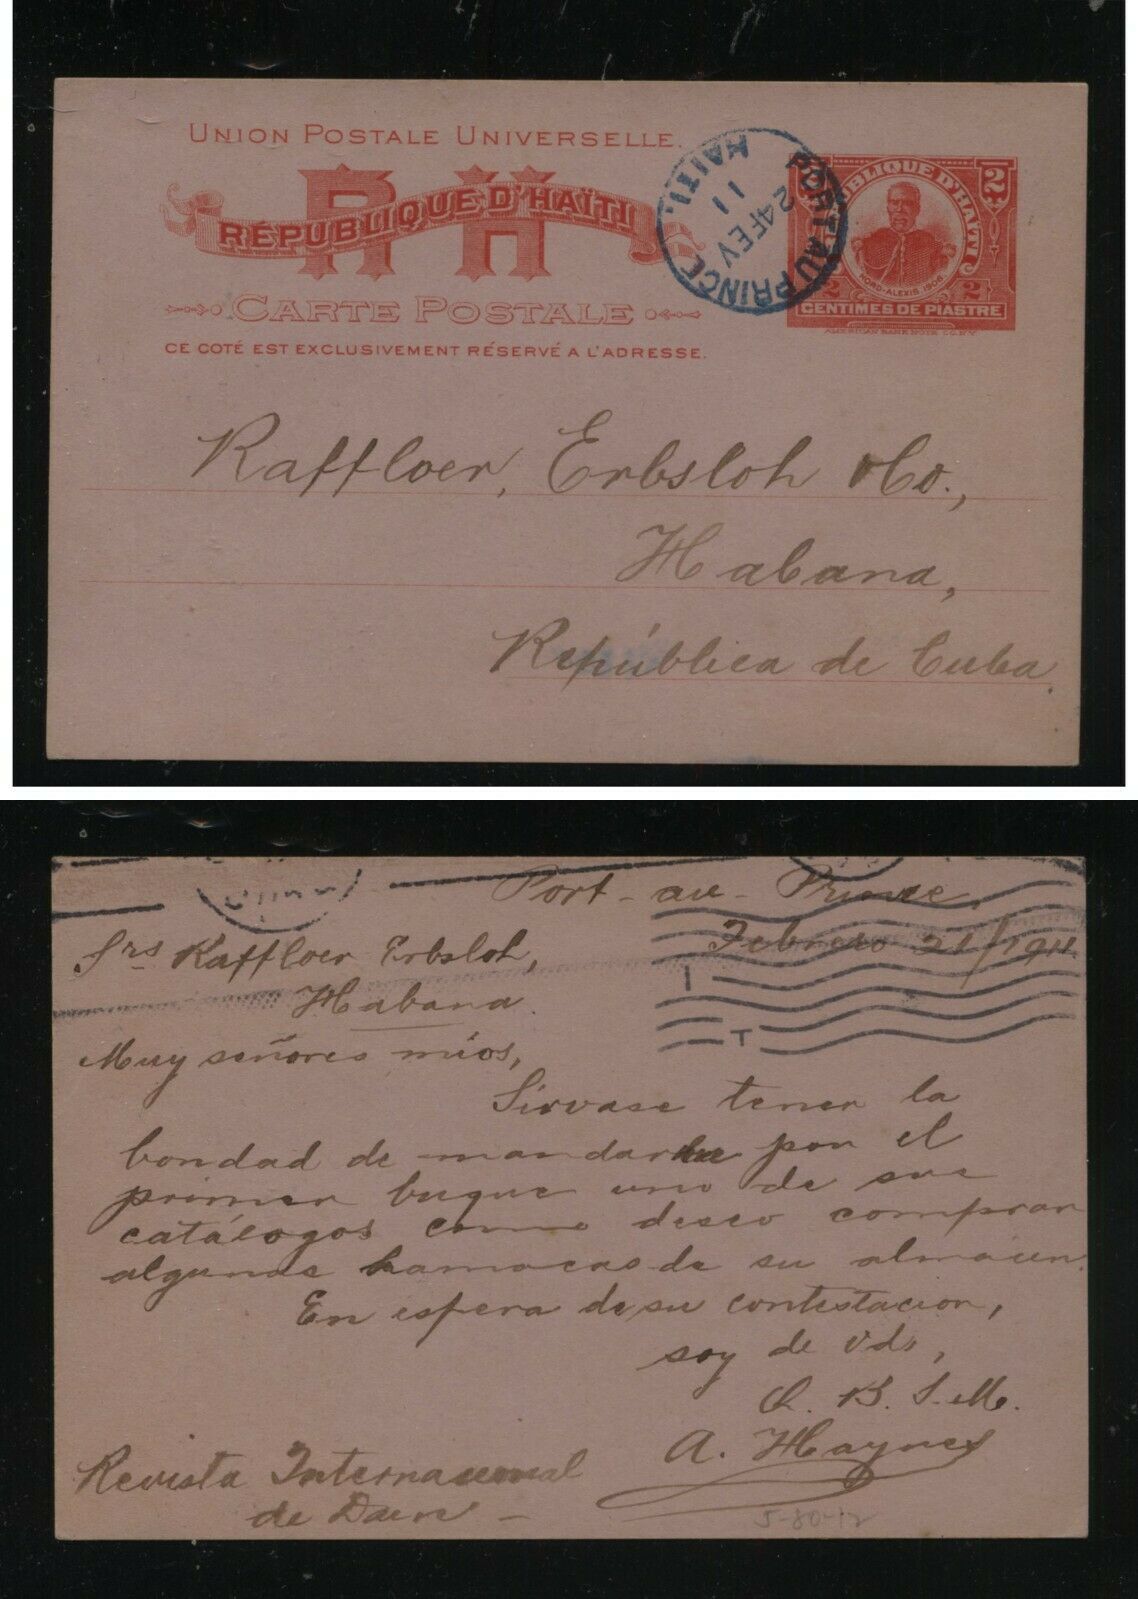 UNION POSTALE UNIVERSELLE.
RH
RÉPUBLIQUE D'HAÏTI
CARTE POSTALE
CE COTÉ EST EXCLUSIVEMENT RÉSERVÉ A L'ADRESSE.
PORT AU PRINCE
24 FEV
11
HAITI.
2 2
RÉPUBLIQUE D'HAÏTI
NORD-ALEXIS 1906.
2 2
CENTIMES DE PIASTRE
AMERICAN BANK NOTE CO. N.Y.
Raffloer, Erbsloh & Co.,
Habana,
República de Cuba.
Port-au-Prince,
Febrero 21/1911
Srs Raffloer Erbsloh,
Habana.
Muy señores mios,
Sirvase tener la
bondad de mandarme por el
primer buque uno de sus
catálogos como deseo comprar
algunas hamacas de su almacen.
En espera de su contestacion,
soy de Vds,
Q. B. S. M.
A. Haynes
Revista Internacional
de
5-80-12
T